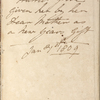 given her by her
Dear Mother as
a New Years Gift
Jan 1st 1804